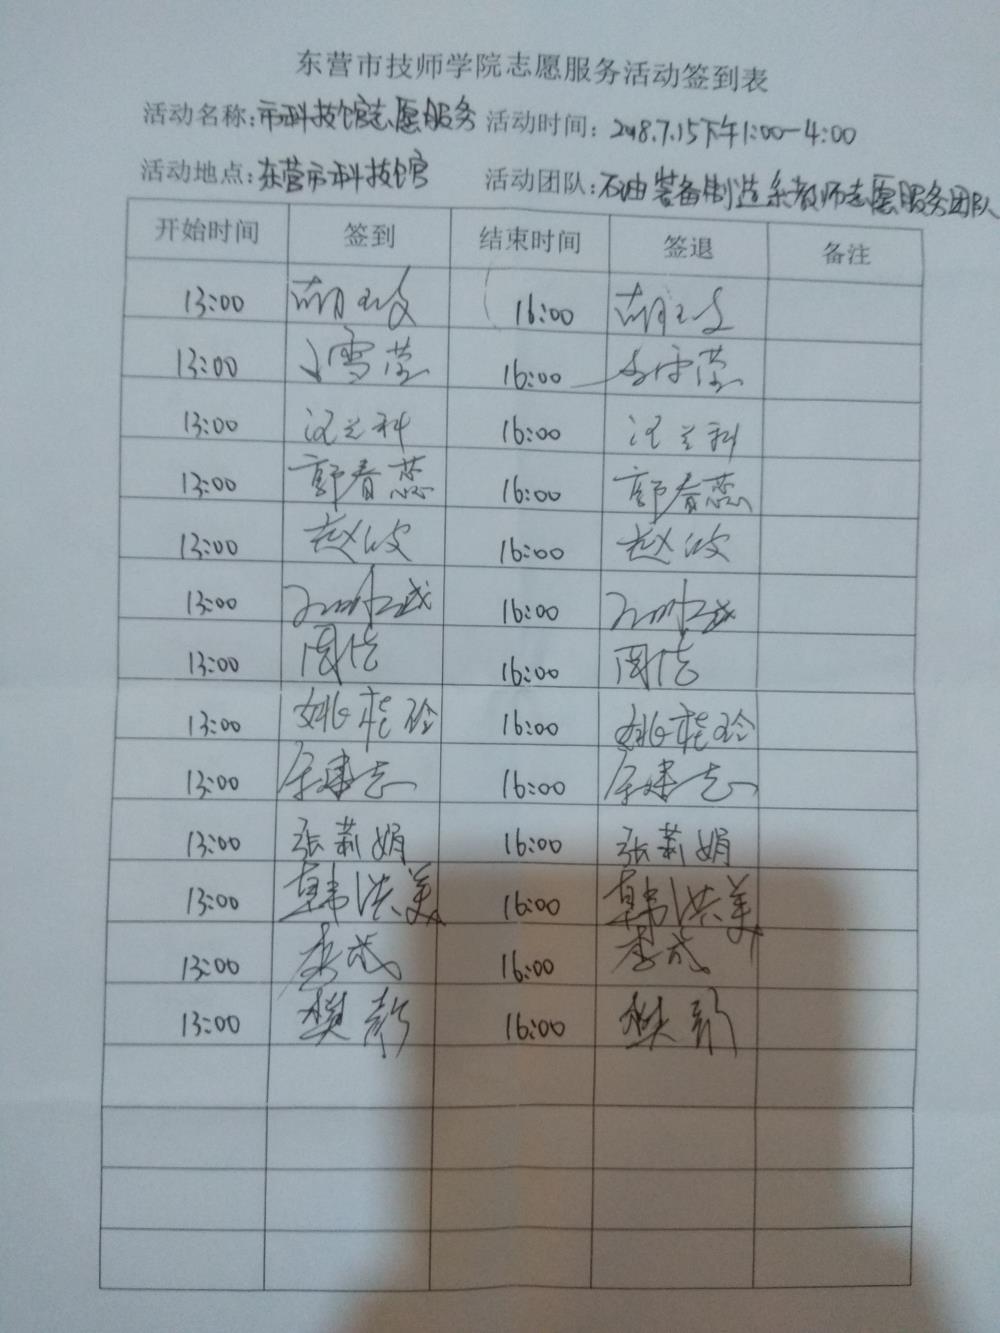 东营市技师学院志愿服务活动签到表
活动名称:市科技馆志愿服务 活动时间:2018.7.15下午1:00-4:00
活动地点:东营市科技馆 活动团队:石油装备制造系教师志愿服务团队
开始时间 签到 结束时间 签退 备注
13:00 16:00
13:00 雪莹 16:00
13:00 16:00
13:00 郭春蕊 16:00 郭春蕊
13:00 赵波 16:00 赵波
13:00 16:00
13:00 周浩 16:00 周浩
13:00 姚桂玲 16:00 姚桂玲
13:00 建志 16:00 建志
13:00 张莉娟 16:00 张莉娟
13:00 韩洪美 16:00 韩洪美
13:00 16:00
13:00 樊彩 16:00 樊彩